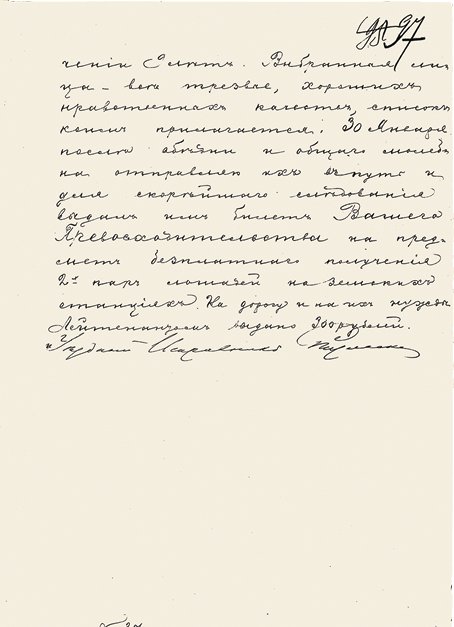 97
ченіи Смотъ. Выбранныя ли-
ца - все трезвые, хорошихъ
нравственныхъ качествъ, списокъ
коихъ прилагается. 30 Января
послѣ обѣдни и общаго молеб-
на отправляю ихъ въ путь и
для скорѣйшаго слѣдованія
выдалъ имъ билетъ Вашего
Превосходительства на пред-
метъ безплатнаго полученія
2хъ паръ лошадей на земскихъ
станціяхъ. На дорогу и на ихъ нужды
выдано 300 рублей.
Исправникъ